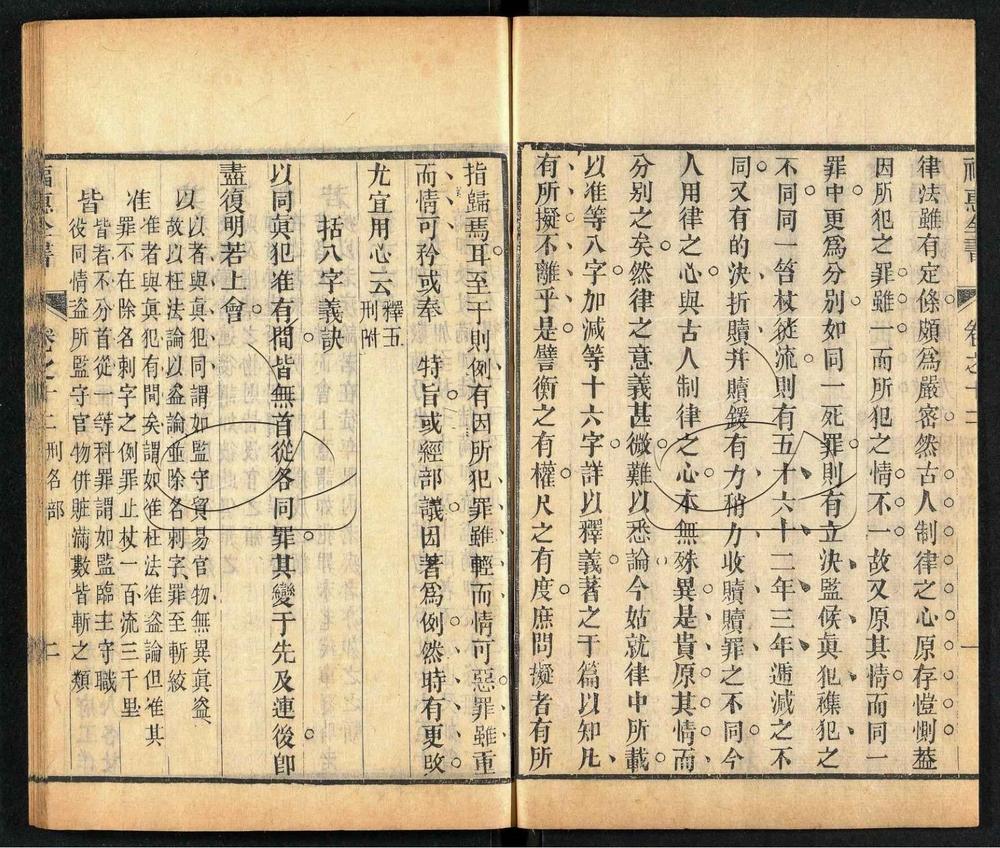 律法雖有定條頗爲嚴密然古人制律之心原存愷惻葢
因所犯之罪雖一而所犯之情不一故又原其情而同一
罪中更爲分别如同一死罪則有立決監候眞犯襍犯之
不同同一笞杖徒流則有五才六十二年三年遞減之不
同又有的決折贖幷贖鍰有力稍力收贖贖罪之不同今
人用律之心與古人制律之心本無殊異是貴原其情而
分别之矣然律之意義甚微難以悉論今姑就律中所載
以准等八字加減等十六字詳以釋義著之于篇以知凡
有所擬不離乎是譬衡之有權尺之有度庶問擬者有所
指歸焉耳至于則例有因所犯罪雖輕而情可惡罪雖重
而情可矜或奉 特旨或經部議因著爲例然時有更改
尤宜用心云 釋五刑附
括八字義訣
以同眞犯准有間皆無首從各同罪其變于先及連後卽
盡復明若上會
以 以者與眞犯同謂如監守貿易官物無異眞盜
故以枉法論以盜論並除名刺字罪至斬絞
准 准者與眞犯有間矣謂如准枉法准盜論但准其
罪不在除名刺字之例罪止杖一百流三千里
皆 皆者不分首從一等科罪謂如監臨主守職
役同情盜所監守官物併贓滿數皆斬之類
福惠全書 卷之十二 刑名部 二